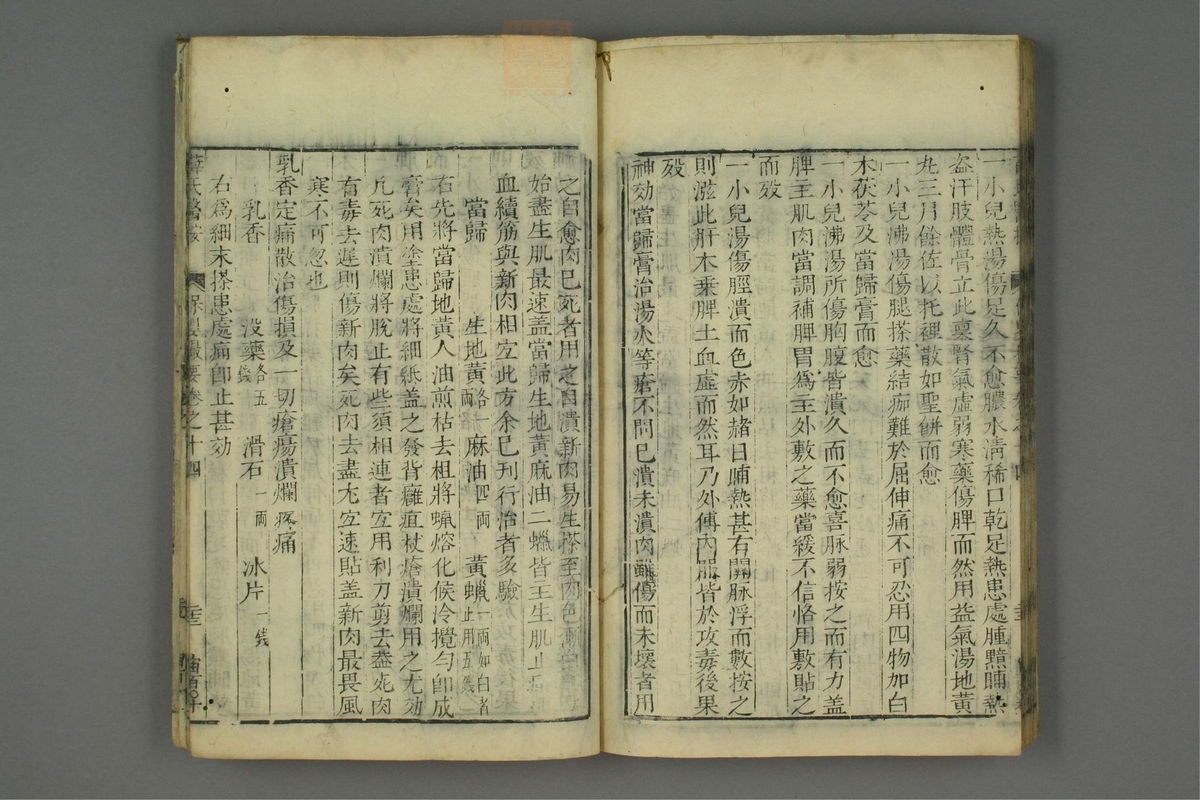 一小兒熱湯傷足久不愈膿水淸稀口乾足熱患處腫黯晡熱
盗汗肢體骨立此禀腎氣虛弱寒藥傷脾而然用益氣湯地黃
丸三月餘佐以托裡散如聖餅而愈
一小兒沸湯傷腿搽藥結痂難於屈伸痛不可忍用四物加白
木茯苓及當歸膏而愈
一小兒沸湯所傷胸腹皆潰久而不愈喜脉弱按之而有力盖
脾主肌肉當調補脾胃爲主外敷之藥當緩不信恪用敷貼之
而歿
一小兒湯傷脛潰而色赤如赭日晡熱甚右關脉浮而數按之
則澁此肝木乗脾土血虛而然耳乃外傅内服皆於攻毒後果
歿
神効當歸膏治湯火等瘡不問已潰未潰肉雖傷而未壊者用
之自愈肉已死者用之自潰新肉易生搽至肉色漸白
始盡生肌最速盖當歸生地黃麻油二蠟皆主生肌止
血續筋與新肉相宜此方余已刊行治者多驗
當歸 生地黃各一兩 麻油四兩 黃蠟一兩如白者止用五錢
右先將當歸地黃入油煎枯去柤將蠟熔化候冷攪勻即成
膏矣用塗患處將細紙盖之發背癰疽杖瘡潰爛用之尤効
凢死肉潰爛將脫止有些須相連者宜用利刀剪去盖死肉
有毒去遲則傷新肉矣死肉去盡尤宜速貼盖新肉最畏風
寒不可忽也
乳香定痛散治傷損及一切瘡瘍潰爛疼痛
乳香 没藥各五錢 滑石一兩 冰片一錢
右爲細末搽患處痛卽止甚効
薛氏醫按 保嬰撮要卷之十四